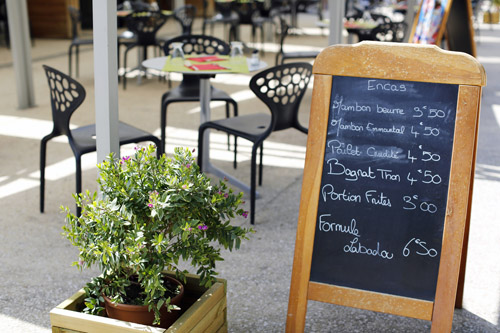 Encas
Jambon beurre 3€50
Jambon Emmental 4€50
Poulet Crudité 4€50
Bagnat Thon 4€50
Portion Frites 3€00
Formule
Labadou 6€50